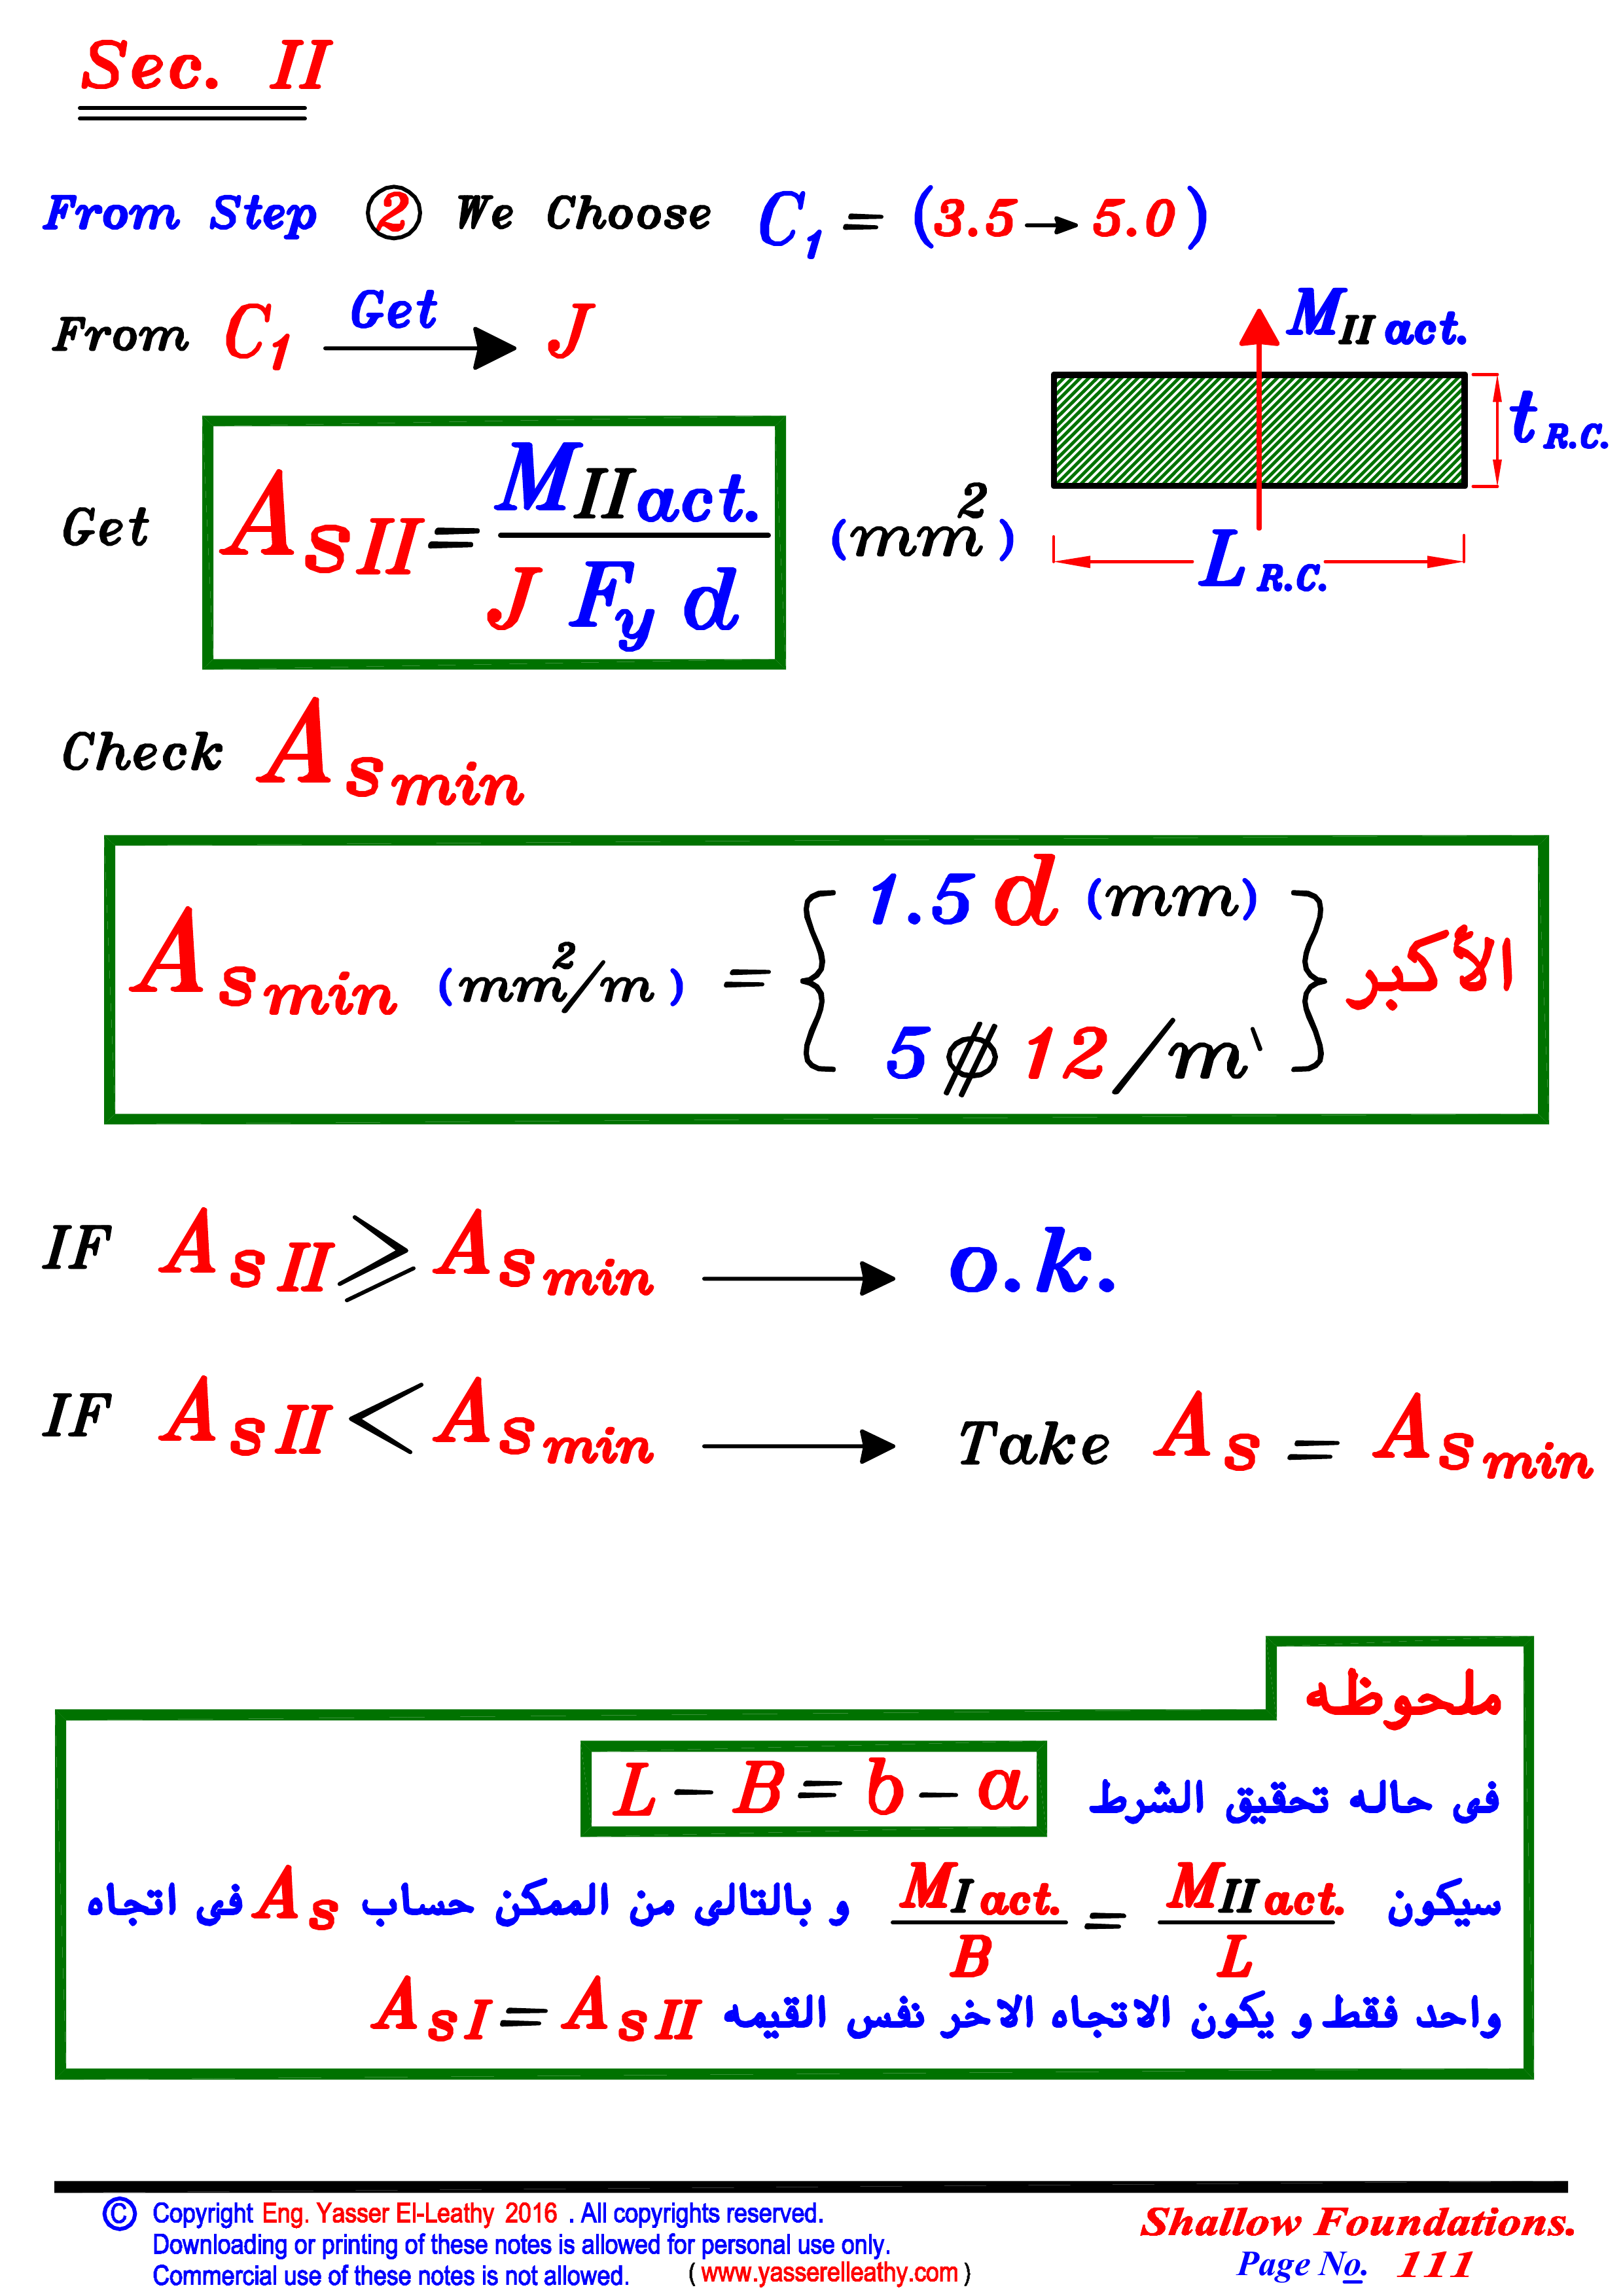 Sec. II
From Step 2 We Choose C1 = (3.5 → 5.0)
From C1 Get → J
MII act.
tR.C.
LR.C.
Get AsII = MII act. / J Fy d (mm²)
Check Asmin
Asmin (mm²/m) = { 1.5 d (mm)
5 ϕ 12 /m' } الأكبر
IF AsII ⩾ Asmin → o.k.
IF AsII < Asmin → Take As = Asmin
ملحوظه
فى حاله تحقيق الشرط L – B = b – a
سيكون MII act. / L = MI act. / B و بالتالى من الممكن حساب As فى اتجاه
واحد فقط و يكون الاتجاه الاخر نفس القيمه AsI = AsII
© Copyright Eng. Yasser El-Leathy 2016 . All copyrights reserved.
Downloading or printing of these notes is allowed for personal use only.
Commercial use of these notes is not allowed. ( www.yasserelleathy.com )
Shallow Foundations.
Page No. 111